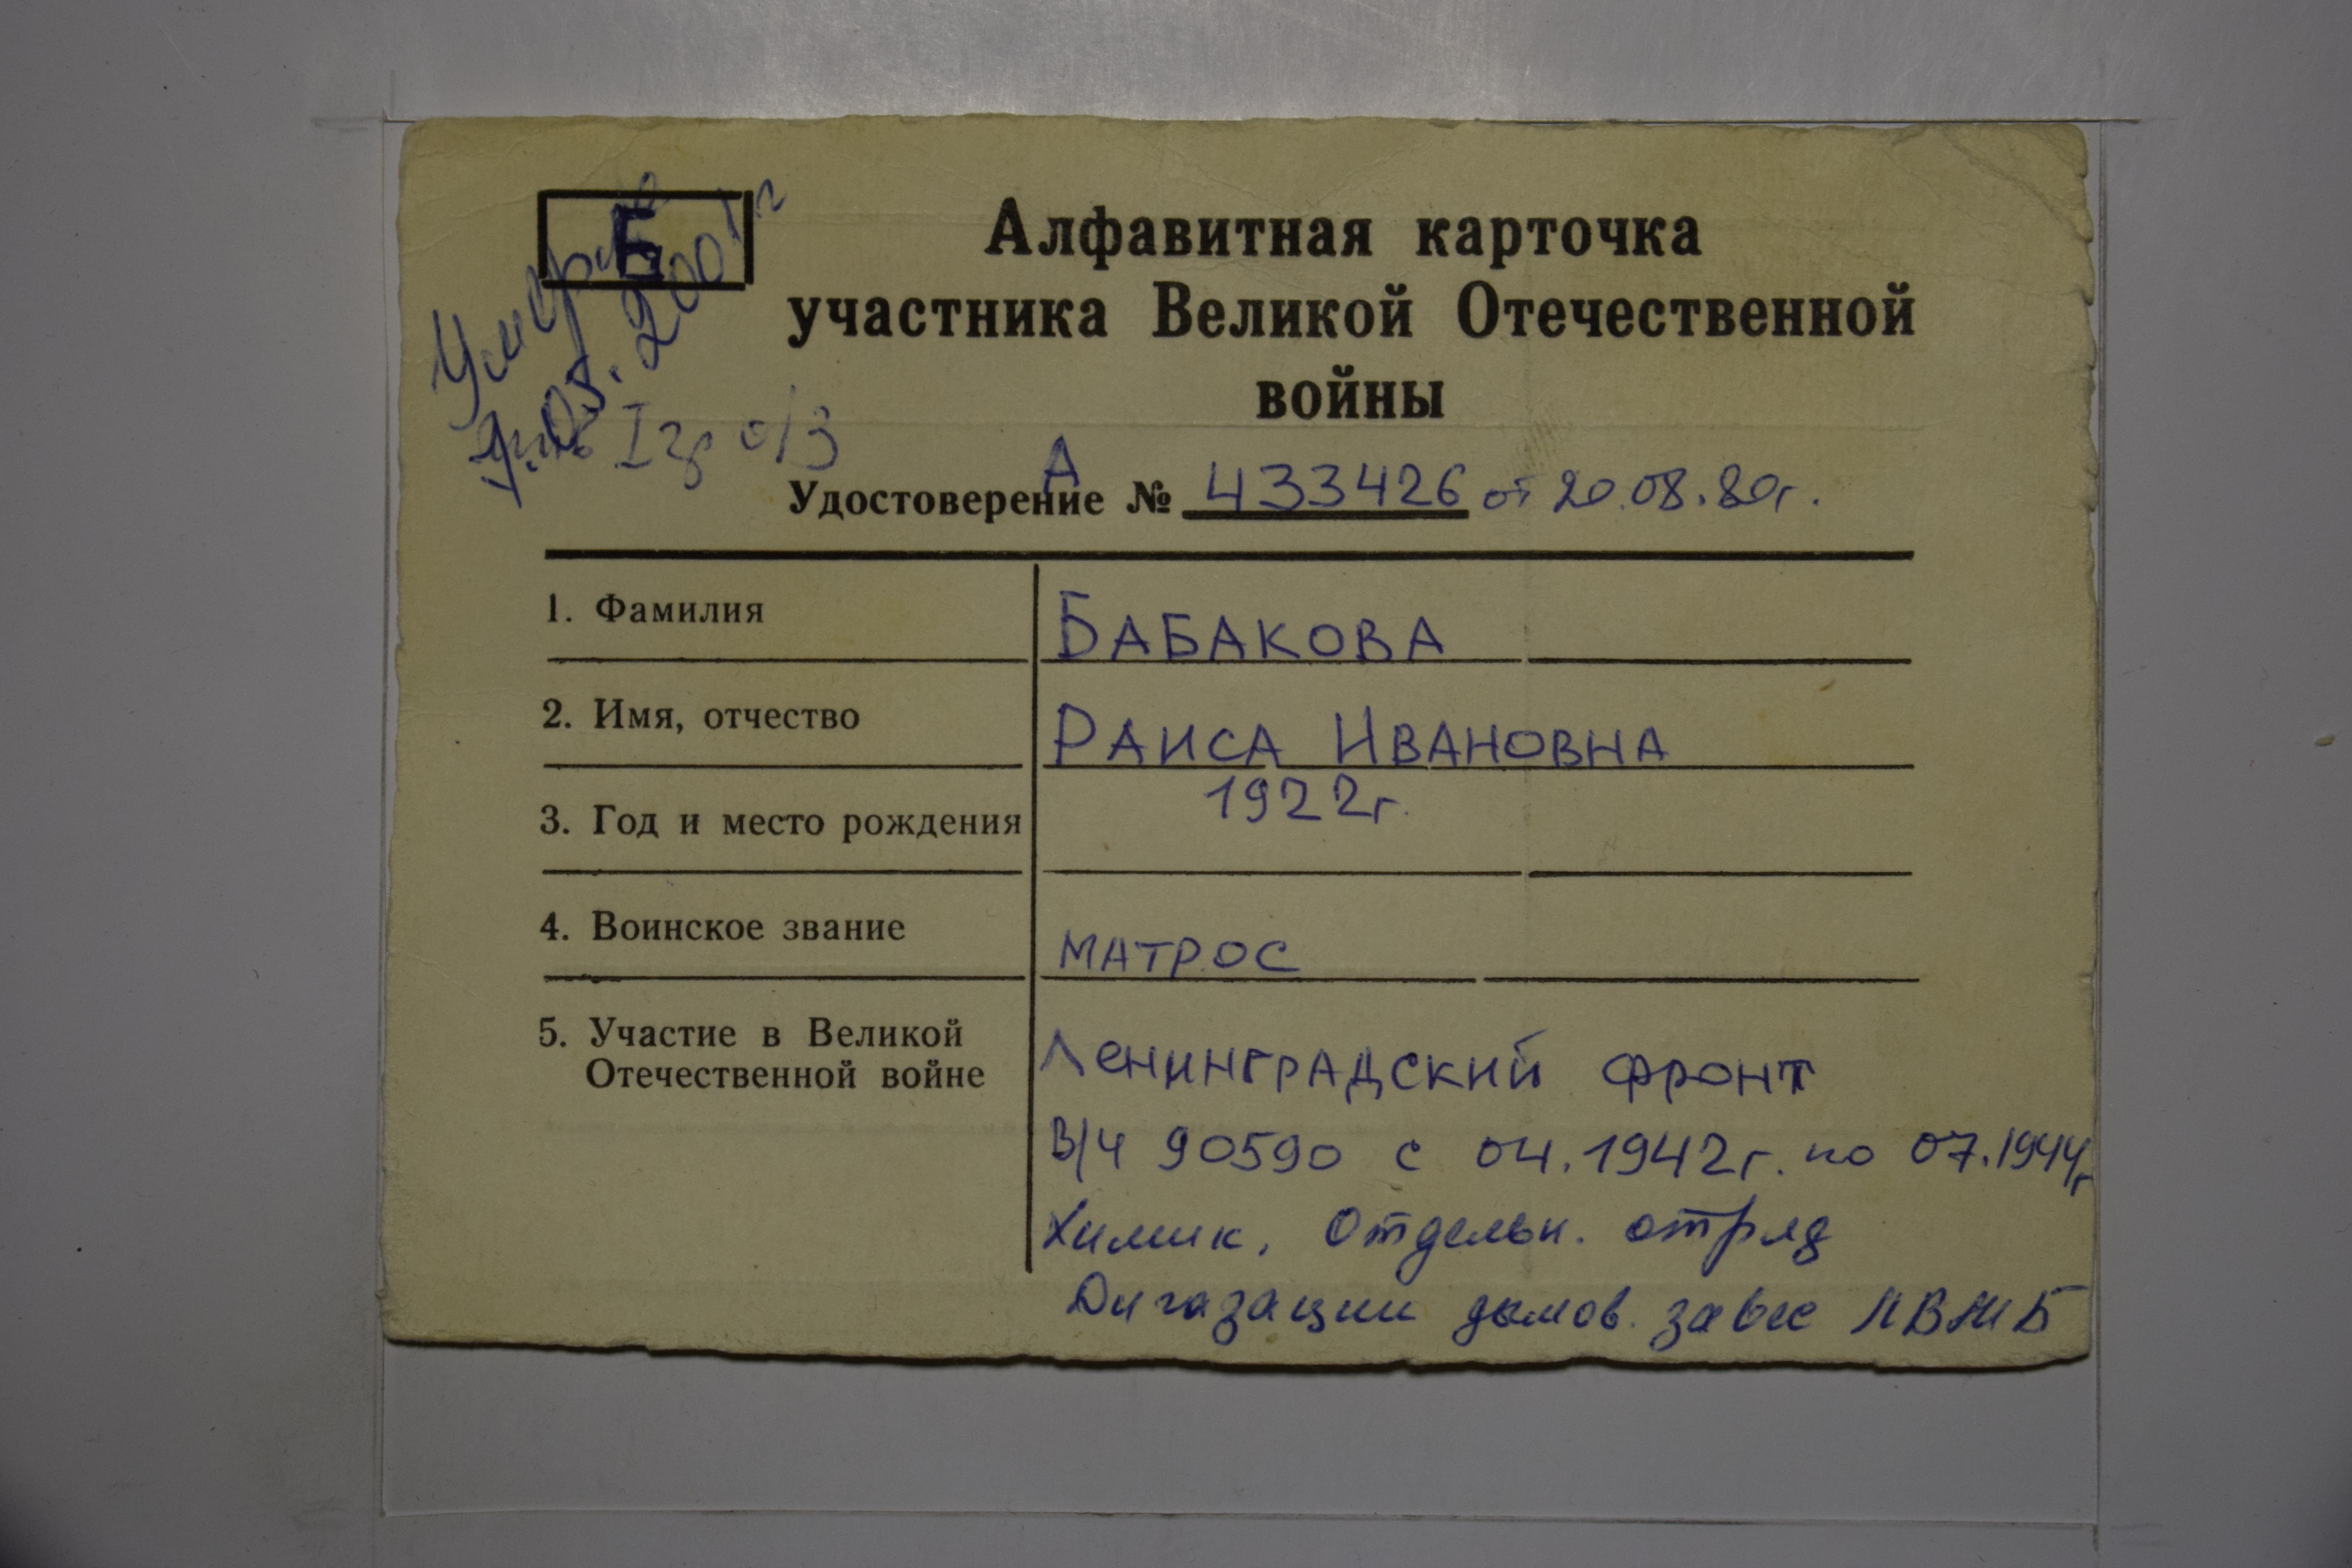 Б
Умерла
9.05.2001г
I гр о/з
Алфавитная карточка
участника Великой Отечественной
войны
А
Удостоверение № 433426 от 20.08.80г.
1. Фамилия БАБАКОВА
2. Имя, отчество РАИСА ИВАНОВНА
3. Год и место рождения 1922г.
4. Воинское звание МАТРОС
5. Участие в Великой
Отечественной войне
ЛЕНИНГРАДСКИЙ ФРОНТ
В/Ч 90590 с 04.1942г. по 07.1944г
Химик. Отдельн. отряд
Дигазации дымов. завес